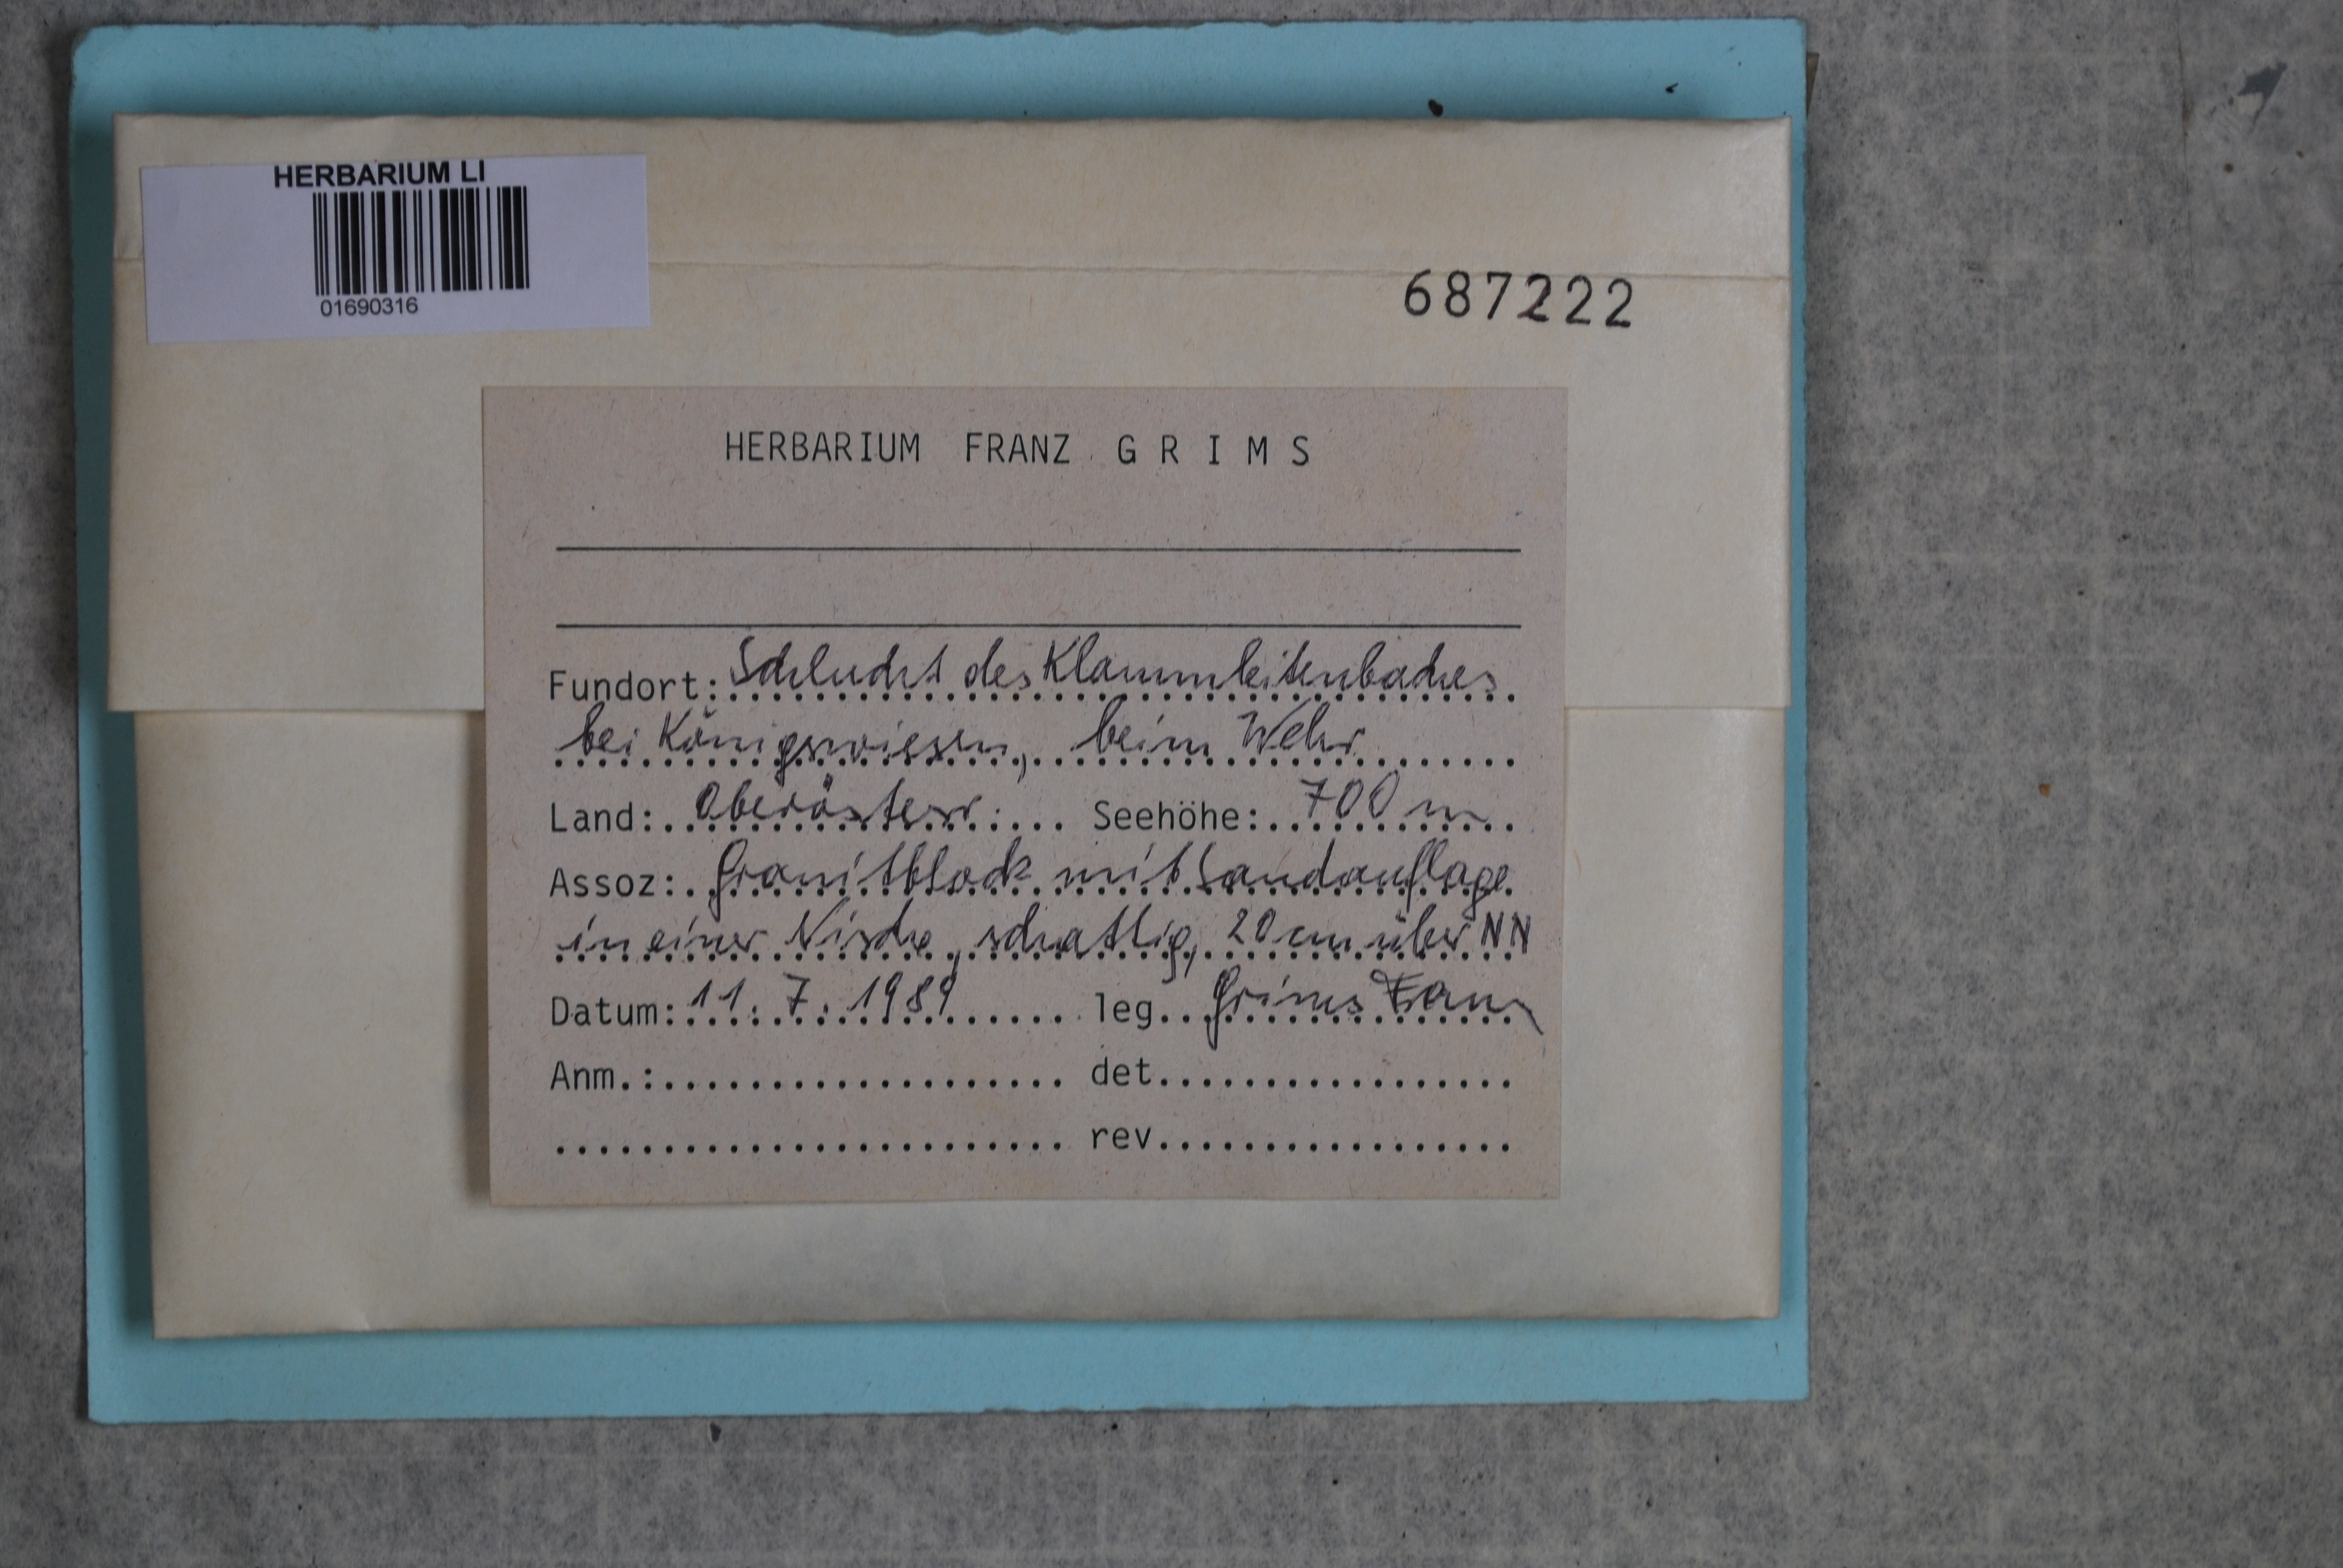 HERBARIUM LI
01690316
687222
HERBARIUM FRANZ G R I M S
Fundort: Schlucht des Klammleitenbaches
bei Königswiesen, beim Wehr
Land: Oberösterr. Seehöhe: 700 m
Assoz: Granitblock mit Sandauflage
in einer Nische, schattig, 20 cm über NN
Datum: 11. 7. 1989 leg. Grims Franz
Anm.: det.
rev.